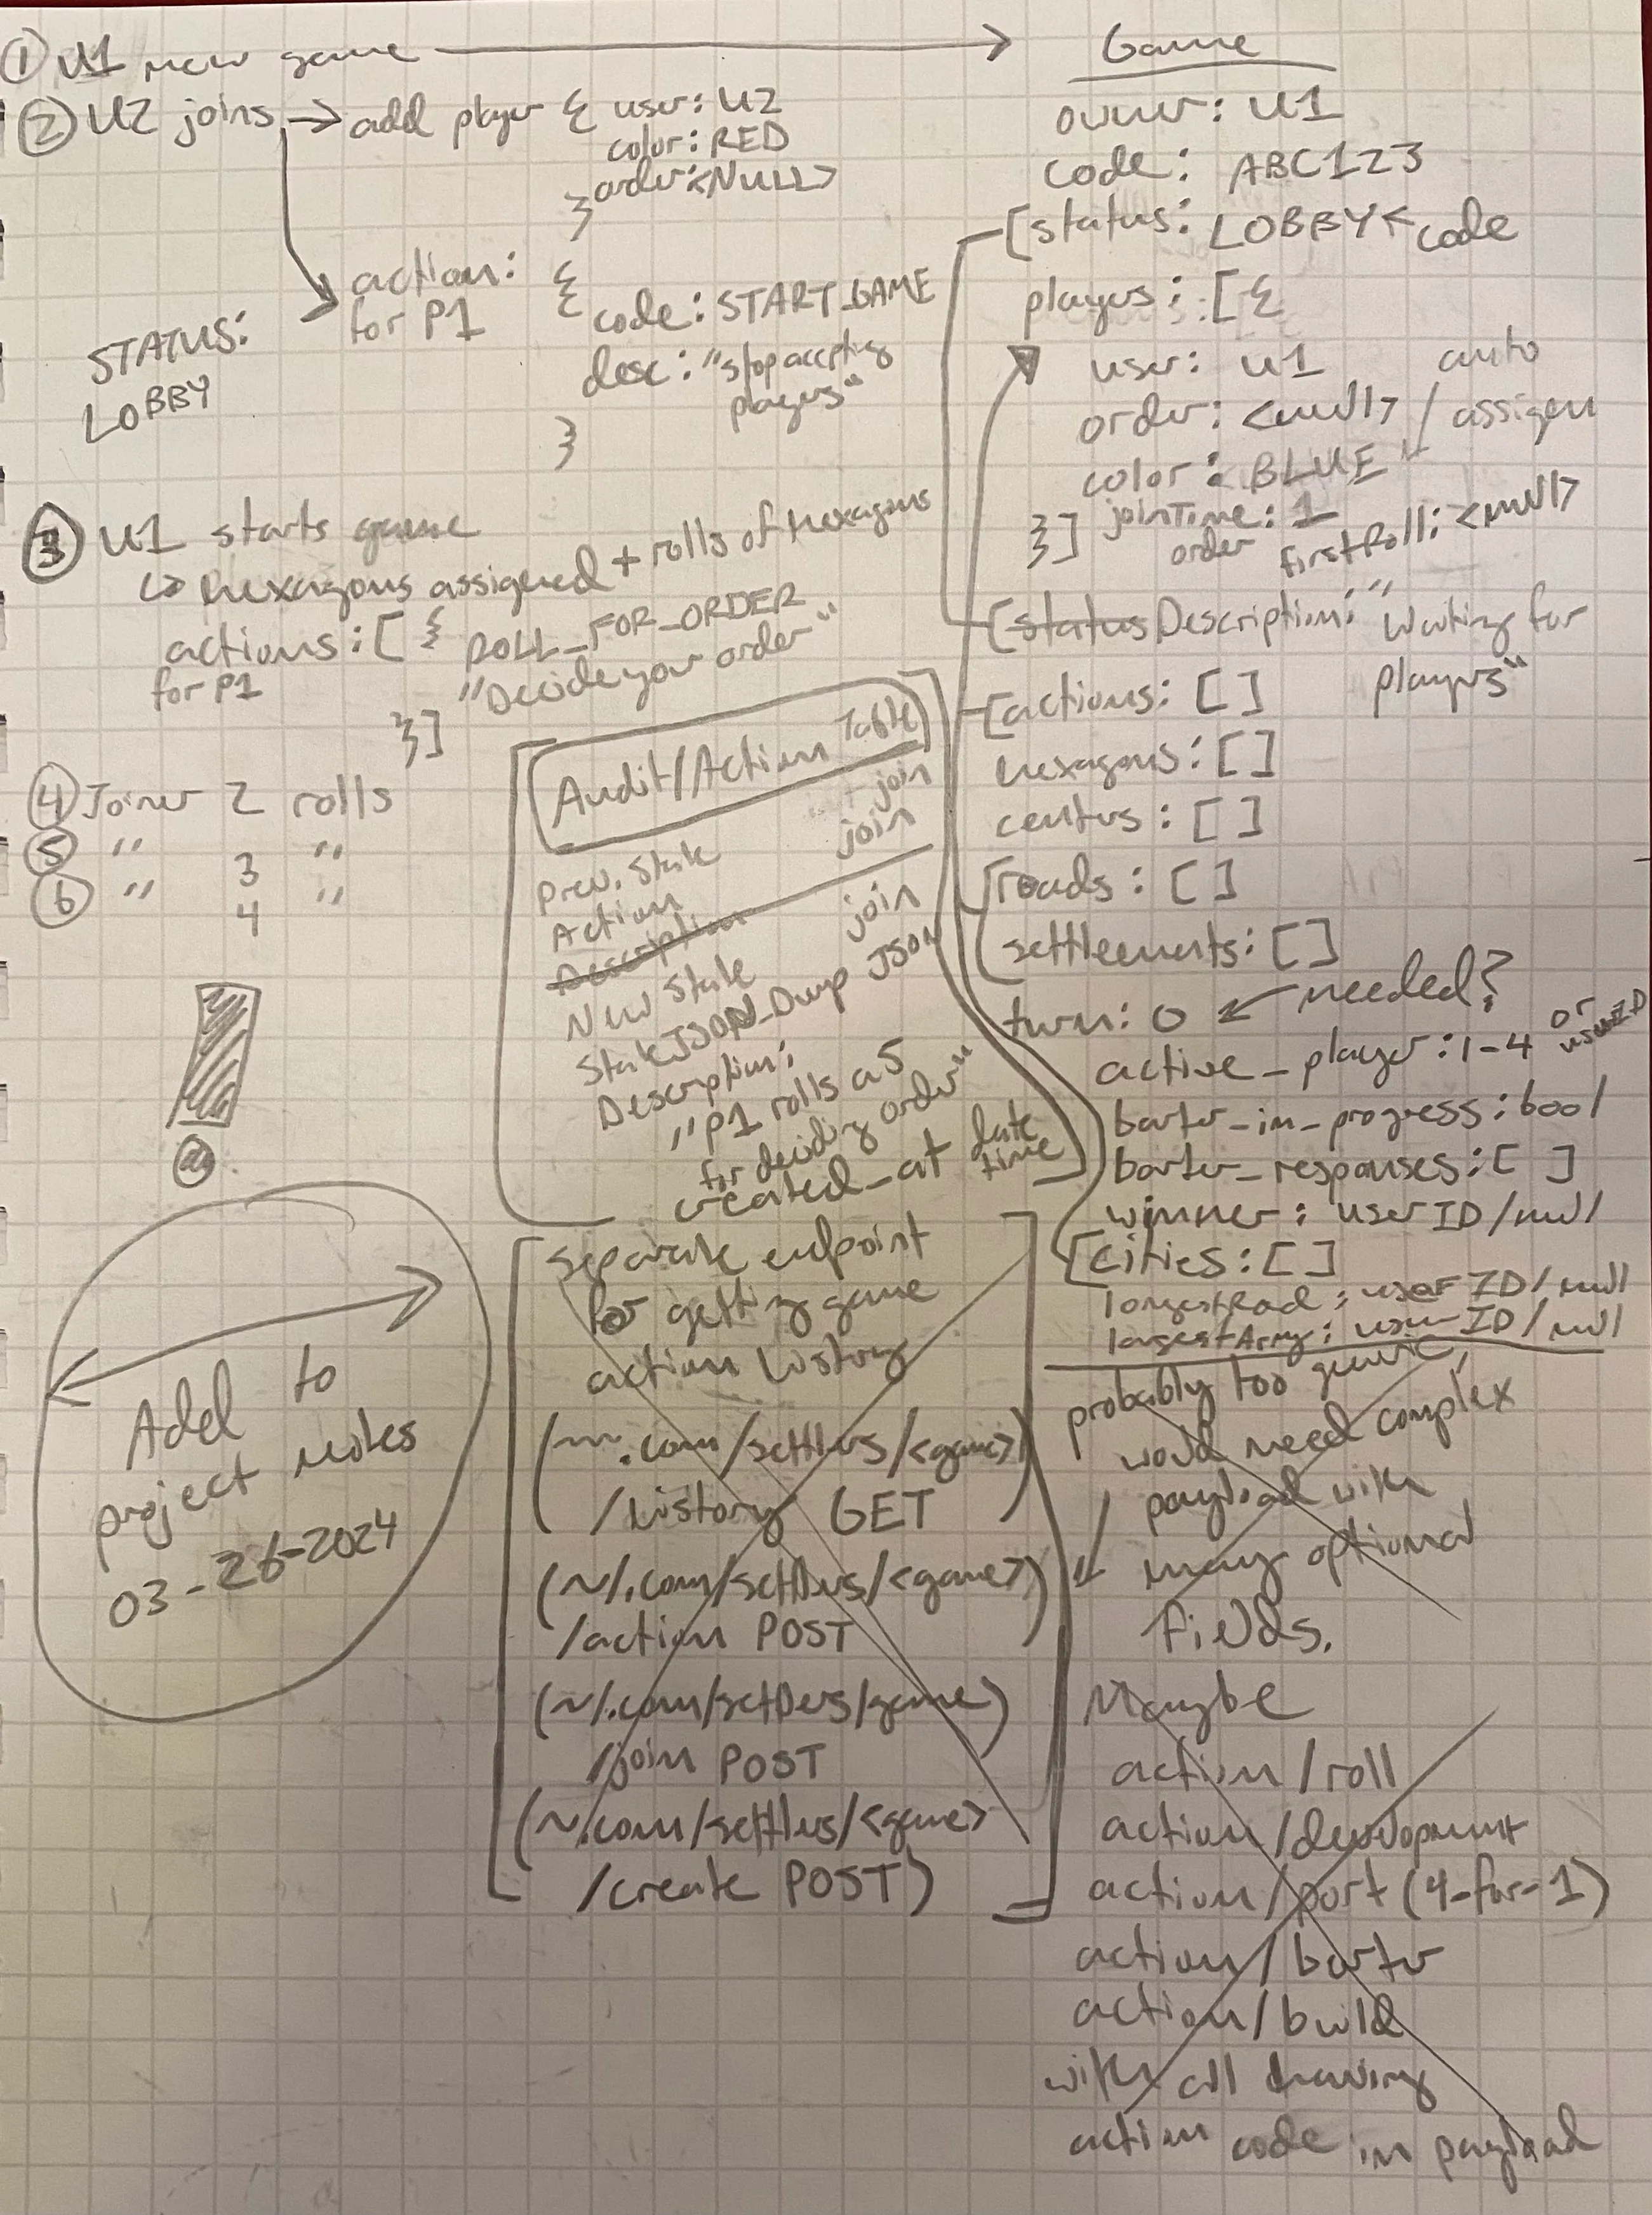 ① U1 new game
② U2 joins → add player { user: U2
color: RED
order: <NULL>
}
action: {
for P1
code: START_GAME
desc: "stop accepting
players"
}
STATUS:
LOBBY
③ U1 starts game
↳ hexagons assigned + rolls of hexagons
actions: [ { ROLL_FOR_ORDER
for P1
"Decide your order"
}]
④ Joiner 2 rolls
⑤ " 3 "
⑥ " 4 "
Add to
project notes
03-26-2024
Audit/Action Table
Prev. State join
Action join
Description
New State join
State JSON_Dump JSON
Description:
"P1 rolls a 5
for deciding order"
created_at date
time
separate endpoint
for getting game
action history
(~.com/settlers/<game>
/history GET )
(~/.com/settlers/<game>
/action POST )
(~/.com/settlers/game)
/join POST
(~.com/settlers/<game>
/create POST)
Game
owner: U1
code: ABC123
[status: LOBBY ← code
players: [{
user: U1
order: <null> / auto
assign
color: BLUE
joinTime: 1
order
}]
firstRoll: <null>
[statusDescription: "Waiting for
players"
[actions: []
hexagons: []
centers: []
[roads: []
settlements: []
turn: 0 ← needed?
active_player: 1-4 or
userID
barter_in_progress: bool
barter_responses: [ ]
winner: userID/null
[cities: []
longestRoad: userID/null
largestArmy: userID/null
probably too generic,
would need complex
payload with
many optional
fields.
Maybe
action/roll
action/development
action/port (4-for-1)
action/barter
action/build
with all drawing
action code in payload